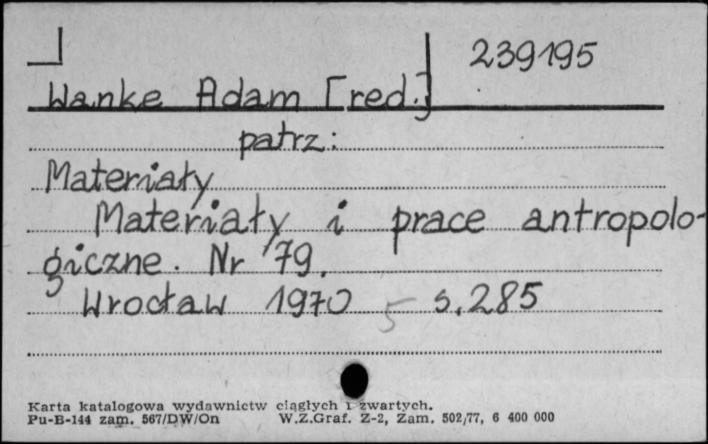 239195
Wanke Adam [red.]
patrz:
Materiały
Materiały i prace antropolo-
giczne. Nr 79.
Wrocław 1970 5 s. 285
Karta katalogowa wydawnictw ciągłych i zwartych.
Pu-B-144 zam. 567/DW/On W.Z.Graf. Z-2, Zam. 502/77, 6 400 000